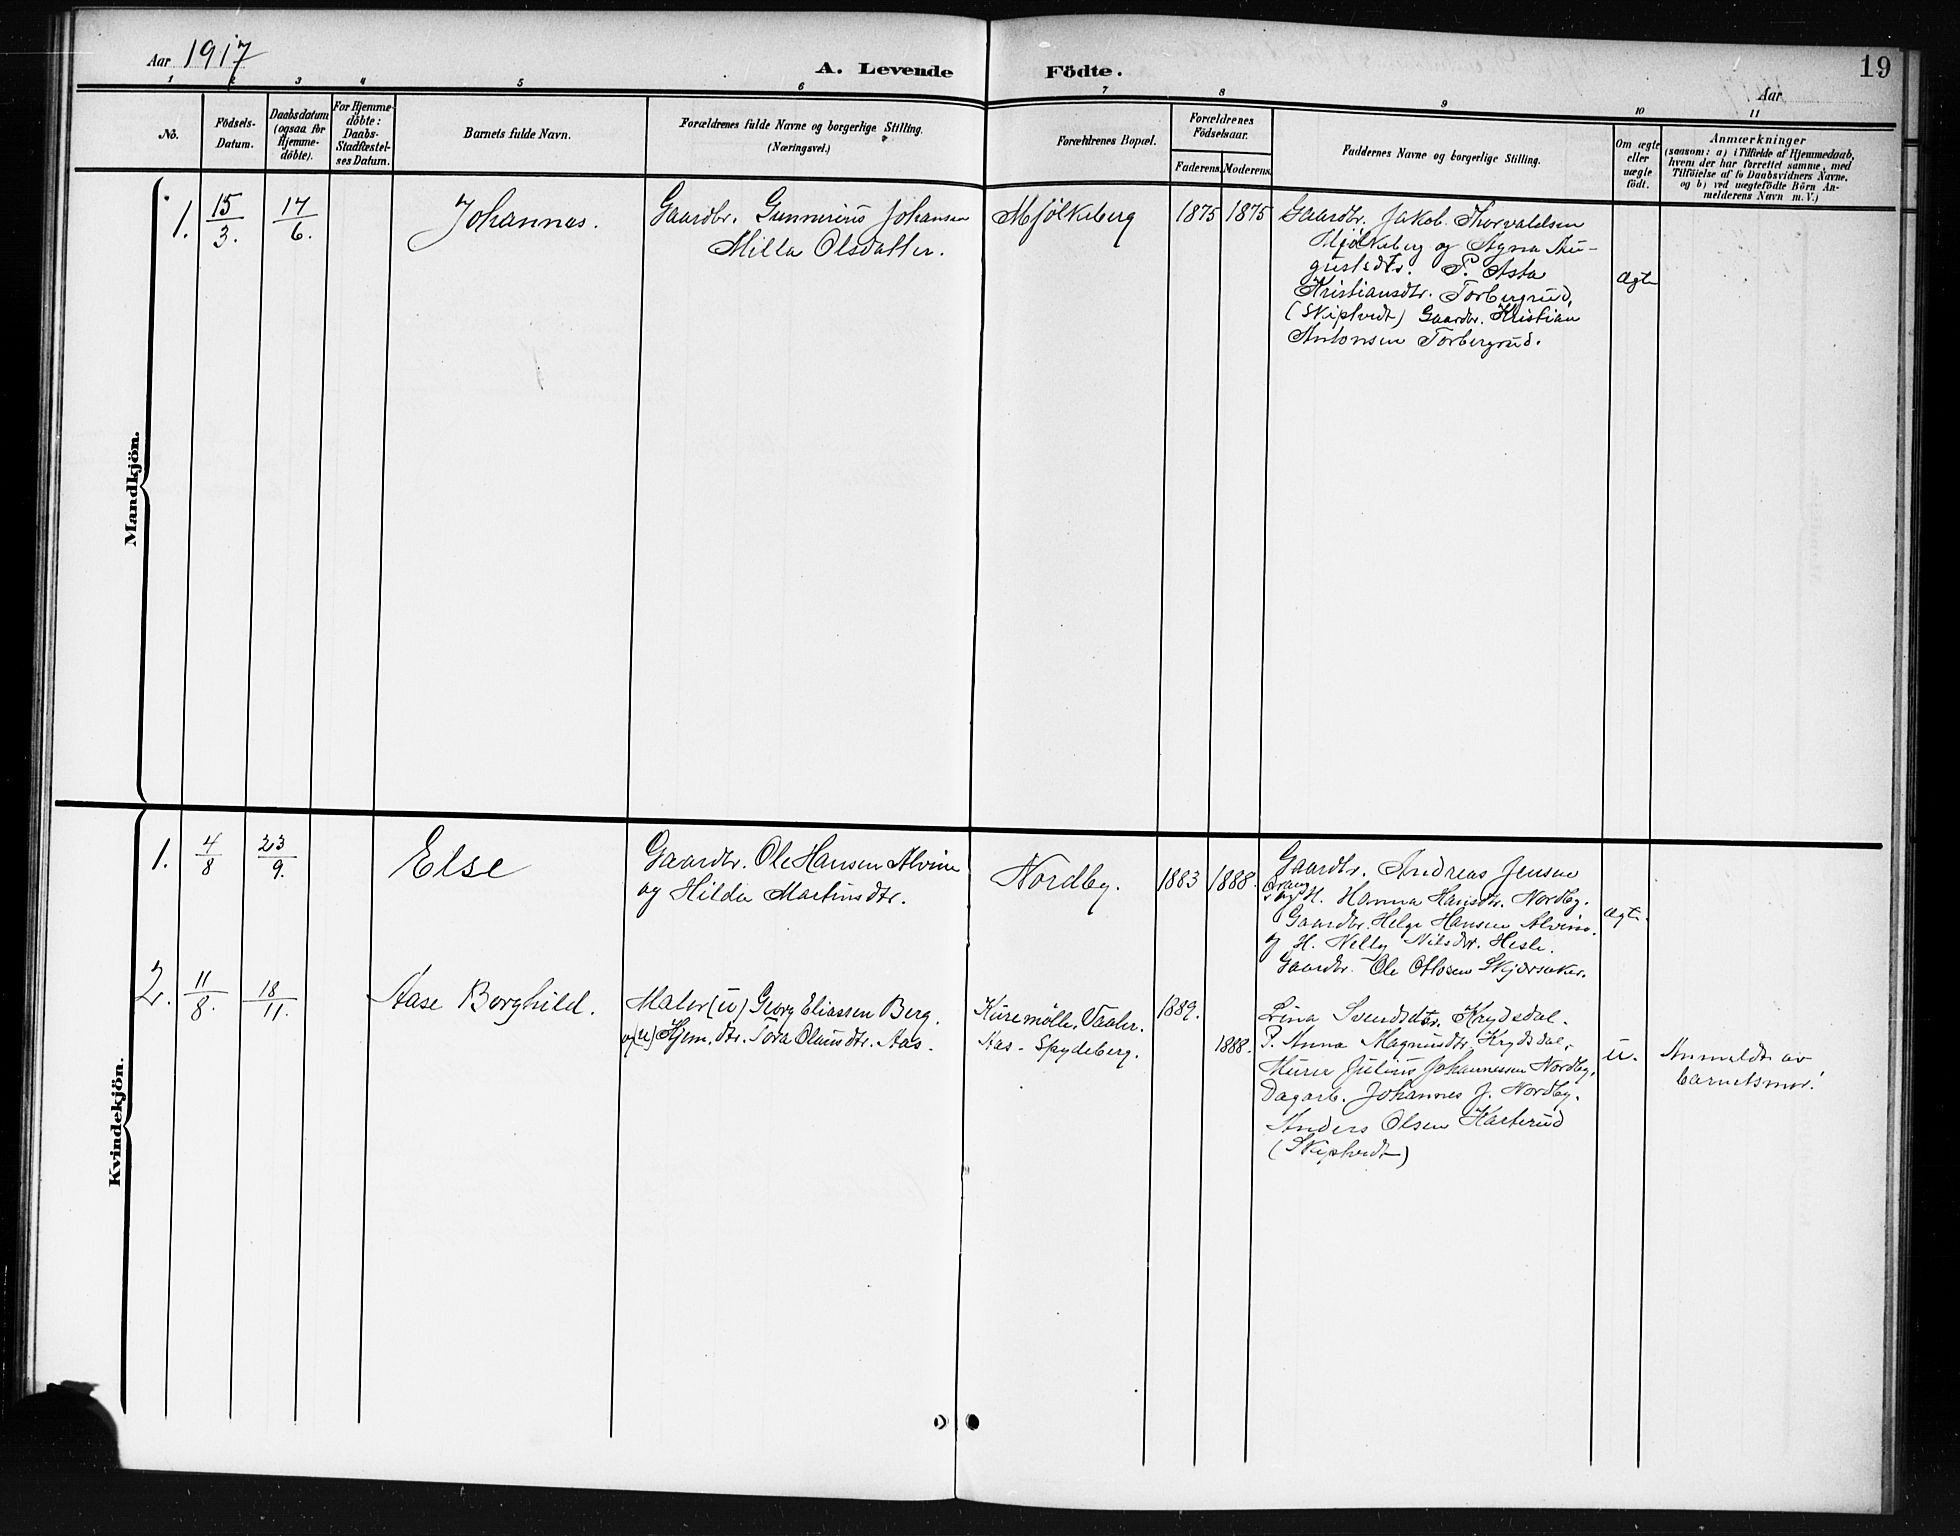 Aar 1917
A. Levende Födte.
19
Aar
1 2 3 4 5 6 7 8 9 10 11
Nô.
Födsels-
Datum.
Daabsdatum
(ogsaa for
Hjemme-
döbte).
For Hjemme-
döbte:
Daabs-
Stadfæstel-
ses Datum.
Barnets fulde Navn.
Forældrenes fulde Navne og borgerlige Stilling.
(Næringsvei.)
Forældrenes Bopæl.
Forældrenes
Födselsaar.
Faderens. Moderens.
Faddernes Navne og borgerlige Stilling.
Om ægte
eller
uægte
födt.
Anmærkninger
(saasom: a) i Tilfælde af Hjemmedaab,
hvem der har forrettet samme, med
Tilföielse af to Daabsvidners Navne.
og b) ved uægtefödte Börn An-
melderens Navn m. V.)
Mandkjön.
1.
15/3.
17/6.
Johannes.
Gaardbr. Gunnerius Johansen
Milla Olsdatter.
Mjölkeberg
1875 1875
Gaardbr. Jakob Thorvaldsen
Mjölkeberg og Agna Au-
gustsdtr. P. Asta
Kristiansdtr. Torbergrud,
(Skiptvedt) Gaardbr. Kristian
Antonsen Torbergrud.
Ægte
Kvindekjön.
1.
4/8
23/9.
Else
Gaardbr. Ole Hansen Alvim
og Hilda Martinsdtr.
Nordby.
1883 1888.
Gaardbr. Andreas Jensen
og H. Hanna Hansdtr. Nordby.
Gaardbr. Helge Hansen Alvim.
og H. Nelly Nilsdtr. Hesle.
Gaardbr. Ole Ottosen Skjørsaker.
Ægte.
2.
11/8.
18/11.
Aase Borghild.
Maler (u) Georg Eliassen Berg.
og (u) Hjem. dtr. Tora Olausdtr. Aas.
Kuremölle, Vaaler.
Aas - Spydeberg.
1889.
1888.
Lina Svendsdtr. Krydsdal.
P. Anna Magnusdtr. Krydsdal,
Murer Julius Johannessen Nordby.
Dagarb. Johannes J. Nordby.
Anders Olsen Karterud
(Skiptvedt)
u.
Anmeldt av
barnets mor!